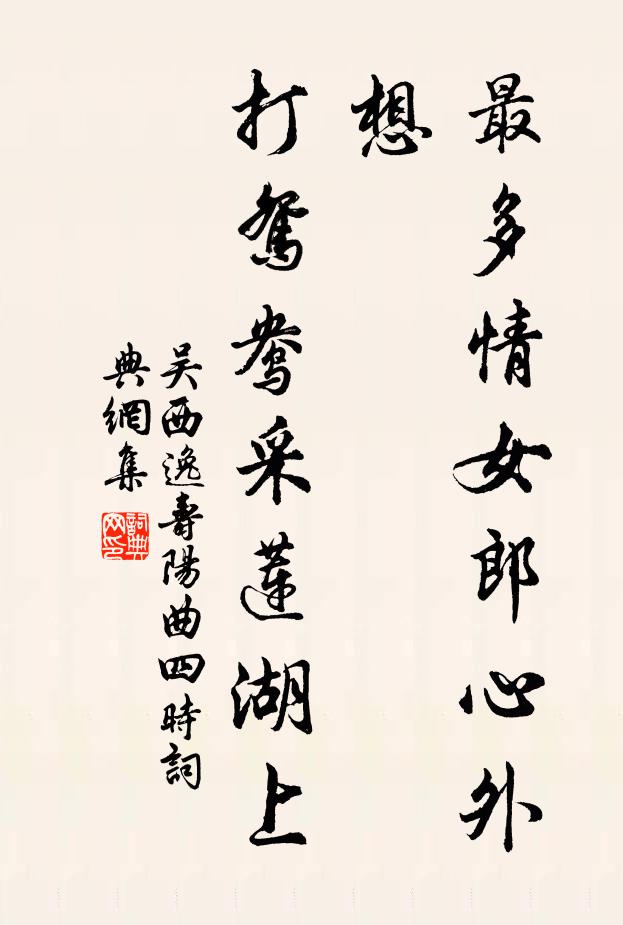 最多情女郎心外
想
打鴛鴦采蓮湖上
吴西逸壽陽曲四時詞
典網集
詞典网印